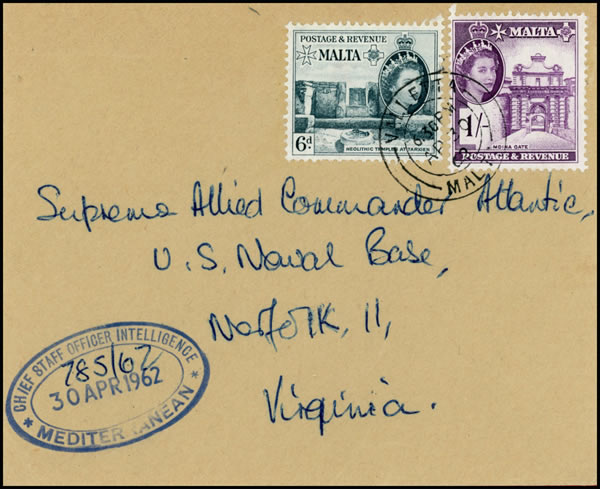 POSTAGE & REVENUE
MALTA
6d
NEOLITHIC TEMPLES AT TARXIEN
MALTA
1/-
MDINA GATE
POSTAGE & REVENUE
VALLETTA
AP 30
MALTA
Supreme Allied Commander Atlantic,
U.S. Naval Base,
Norfolk, 11,
Virginia.
CHIEF STAFF OFFICER INTELLIGENCE
785/62
30 APR 1962
* MEDITERRANEAN *